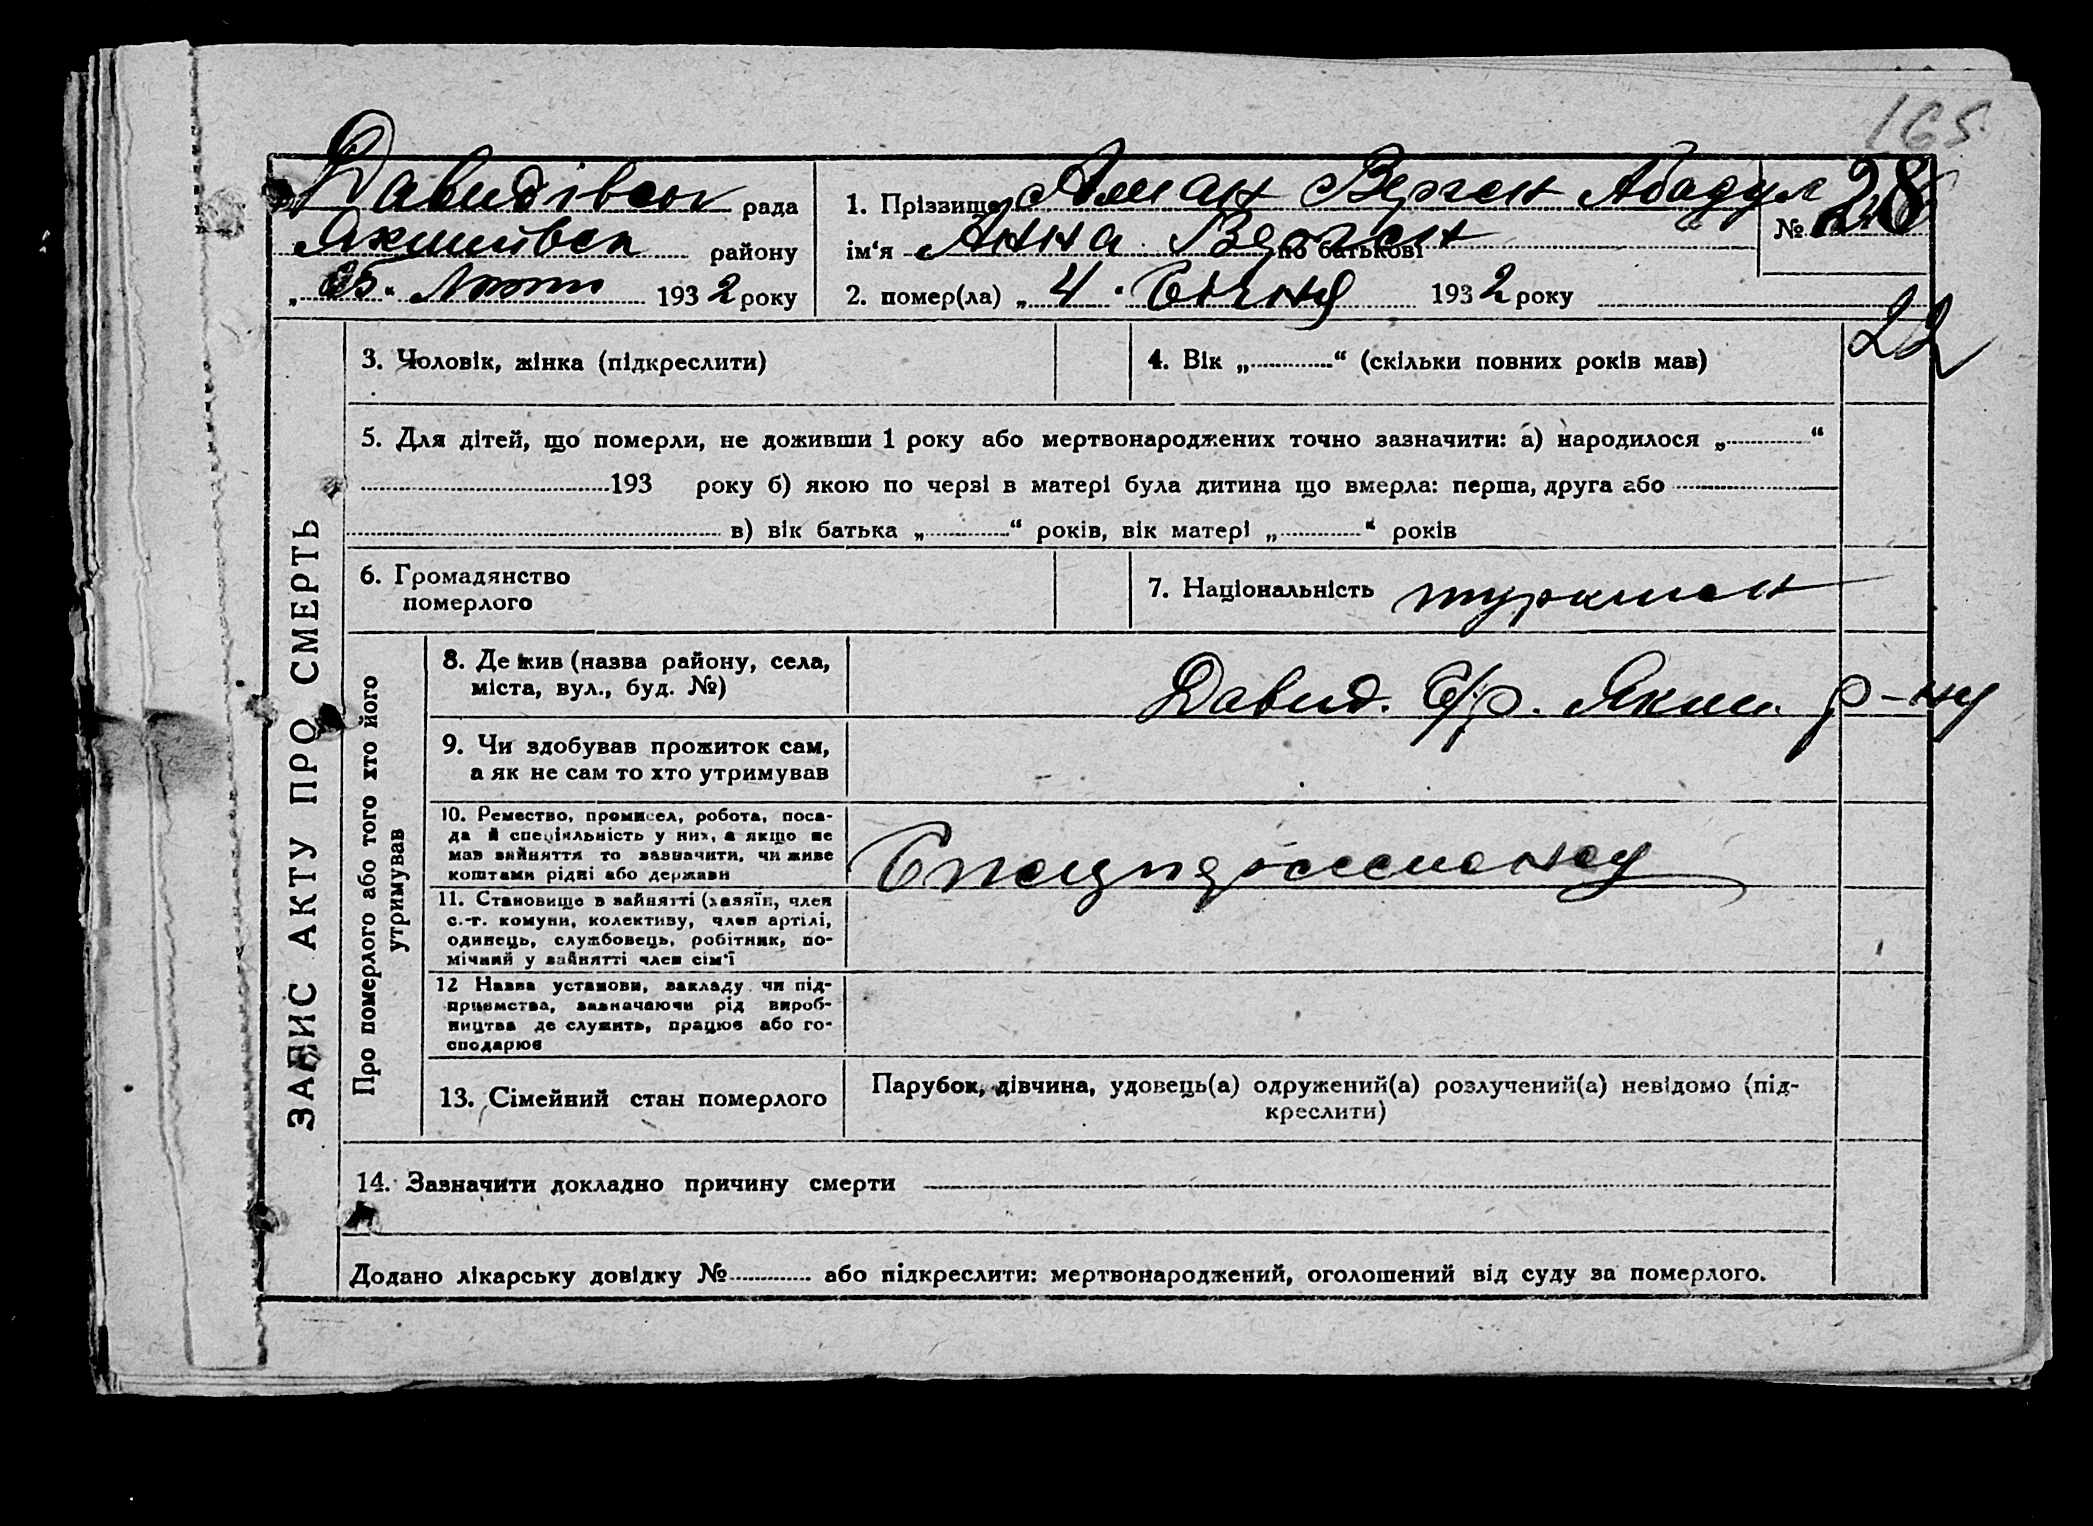 165
Давидівськ рада
Якимівськ району
„ 25 “ Лютого 1932 року
1. Прізвище Аман Верген Абадул
№ 28
ім‘я Анна Верген по батькові
2. помер(ла) „ 4 . Січня 1932 року
22
ЗАПИС АКТУ ПРО СМЕРТЬ
3. Чоловік, жінка (підкреслити)
4. Вік „ “ (скільки повних років мав)
5. Для дітей, що померли, не доживши 1 року або мертвонароджених точно зазначити: а) народилося „ “
193 року б) якою по черзі в матері була дитина що вмерла: перша, друга або
в) вік батька „ “ років, вік матері „ “ років
6. Громадянство
померлого
7. Національність туркмен
Про померлого або того хто його
утримував
8. Де жив (назва району, села,
міста, вул., буд. №)
Давид. С/р. Яким. р-ну
9. Чи здобував прожиток сам,
а як не сам то хто утримував
10. Ремество, промисел, робота, поса-
да й спеціяльність у них, а якщо не
мав зайняття то зазначити, чи живе
коштами рідні або держави
11. Становище в зайнятті (хазяїн, член
с.-г. комуни, колективу, член артілі,
одинець, службовець, робітник, по-
мічний у зайнятті член сім‘ї
12 Назва установи, закладу чи під-
приємства, зазначаючи рід вироб-
ництва де служить, працює або го-
сподарює
13. Сімейний стан померлого
Парубок, дівчина, удовець(а) одружений(а) розлучений(а) невідомо (під-
креслити)
14. Зазначити докладно причину смерти
Додано лікарську довідку № або підкреслити: мертвонароджений, оголошений від суду за померлого.